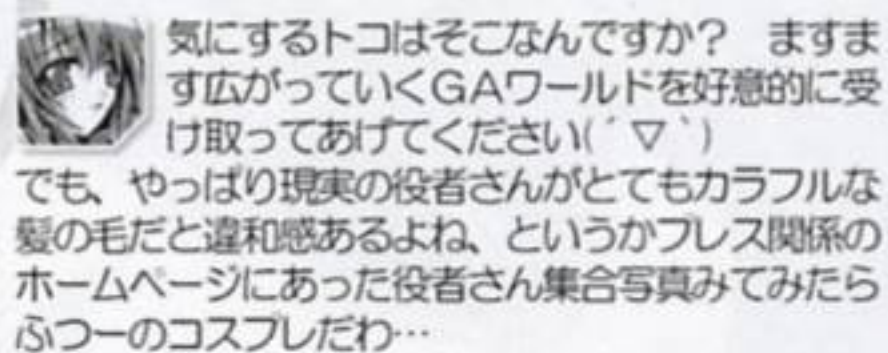 気にするトコはそこなんですか？　ますま
す広がっていくＧＡワールドを好意的に受
け取ってあげてください(´▽｀)
でも、やっぱり現実の役者さんがとてもカラフルな
髪の毛だと違和感あるよね、というかプレス関係の
ホームページにあった役者さん集合写真みてみたら
ふつーのコスプレだわ…